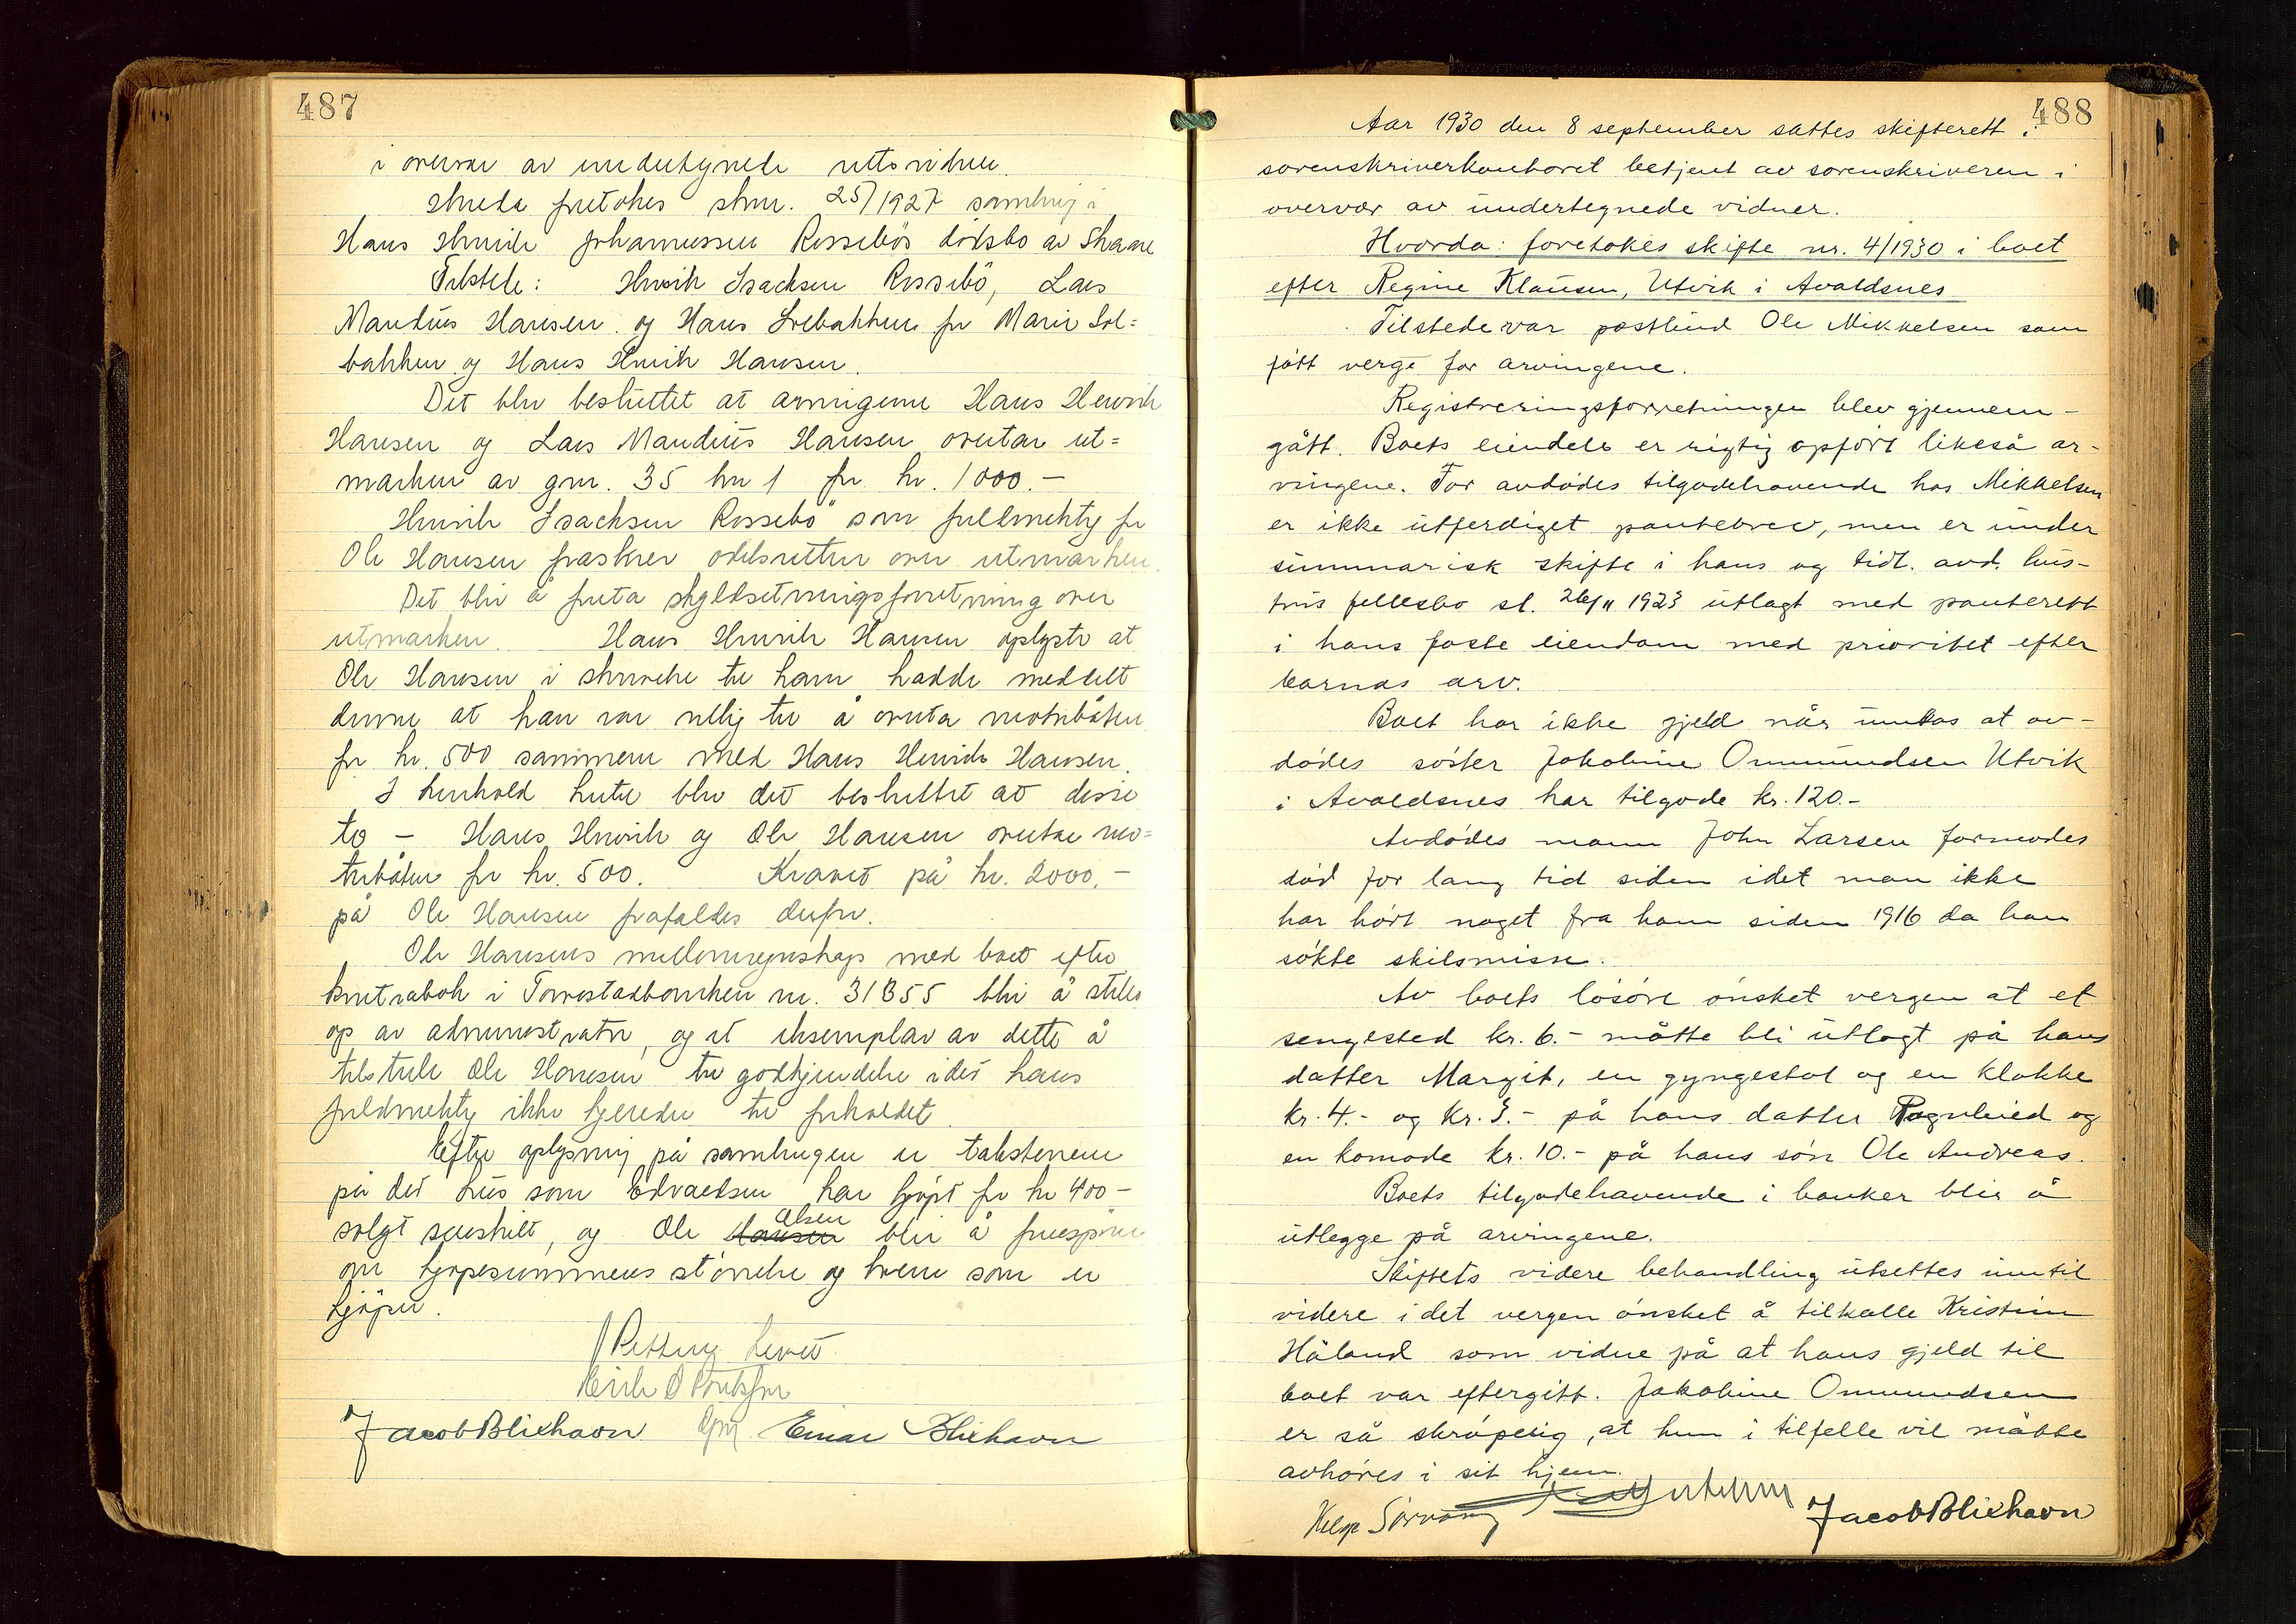 487
i overvær av undertegnede rettsvidner.
Hvorda foretokes sknr. 25/1927 samling i
Hans Henrik Johannessen Rossebös dödsbo av Skaare
Tilstede: Henrik Isachsen Rossebö, Lars
Mandius Hansen og Hans Solbakken for Marie Sol=
bakken og Hans Henrik Hansen.
Det blev besluttet at arvingene Hans Henrik
Hansen og Lars Mandius Hansen overtar ut=
marken av gnr. 35 bnr 1 for kr. 1000.-
Henrik Isachsen Rossebö som fuldmektig for
Ole Hansen fraskrev odelsretten over utmarken.
Det blir å foreta skyldsetningsforretning over
utmarken. Hans Henrik Hansen oplyste at
Ole Hansen i skrivelse til ham hadde meddelt
denne at han var villig til å overta motorbåten
for kr. 500 sammen med Hans Henrik Hansen.
I henhold hertil blev det besluttet at disse
to - Hans Henrik og Ole Hansen overtar mo=
torbåten for kr. 500. Kravet på kr. 2000.-
på Ole Hansen frafaldes derfor.
Ole Hansens mellemregnskap med boet efter
kontrabok i Torvestadbanken nr. 31355 blir å stille
op av administrator, og et eksemplar av dette å
tilstille Ole Hansen til godkjendelse idet hans
fuldmektig ikke kjender til forholdet.
Efter oplysning på samlingen er takstenene
på det hus som Edvardsen har kjöpt for kr 400-
solgt særskilt, og Ole Hansen Olsen blir å forespörre
om kjöpesummens störrelse og hvem som er
kjöper.
Retten hevet
Jacob Bliehavn Einar Bliehavn
488
Aar 1930 den 8 september sattes skifterett i
sorenskriverkontoret betjent av sorenskriveren i
overvær av undertegnede vidner.
Hvorda: foretokes skifte nr. 4/1930 i boet
efter Regine Klausen, Utvik i Avaldsnes
Tilstede var postbud Ole Mikkelsen som
fått verge for arvingene.
Registreringsforretningen blev gjennem-
gått. Boets eiendele er rigtig opført likeså ar-
vingene. For avdødes tilgodehavende hos Mikkelsen
er ikke utferdiget pantebrev, men er under
summarisk skifte i hans og tidl. avd. hus-
trus fellesbo sl. 26/11 1923 utlagt med panterett
i hans faste eiendom med prioritet efter
barnas arv.
Boet har ikke gjeld når undtas at av-
dødes søster Jakobine Ommundsen Utvik
i Avaldsnes har tilgode kr. 120.-
Avdødes mann John Larsen formodes
død for lang tid siden idet man ikke
har hørt noget fra ham siden 1916 da han
søkte skilsmisse.
Av boets løsøre ønsket vergen at et
sengested kr. 6.- måtte bli utlagt på hans
datter Margit, en gyngestol og en klokke
kr. 4.- og kr. 3.- på hans datter Ragnhild og
en komode kr. 10.- på hans søn Ole Andreas.
Boets tilgodehavende i banker blir å
utlegge på arvingene.
Skiftets videre behandling utsettes inntil
videre idet vergen ønsket å tilkalle Kristin
Håland som vidne på at hans gjeld til
boet var eftergitt. Jakobine Ommundsen
er så skrøpelig, at hun i tilfelle vil måtte
avhøres i sit hjem.
Helge Jacob Bliehavn